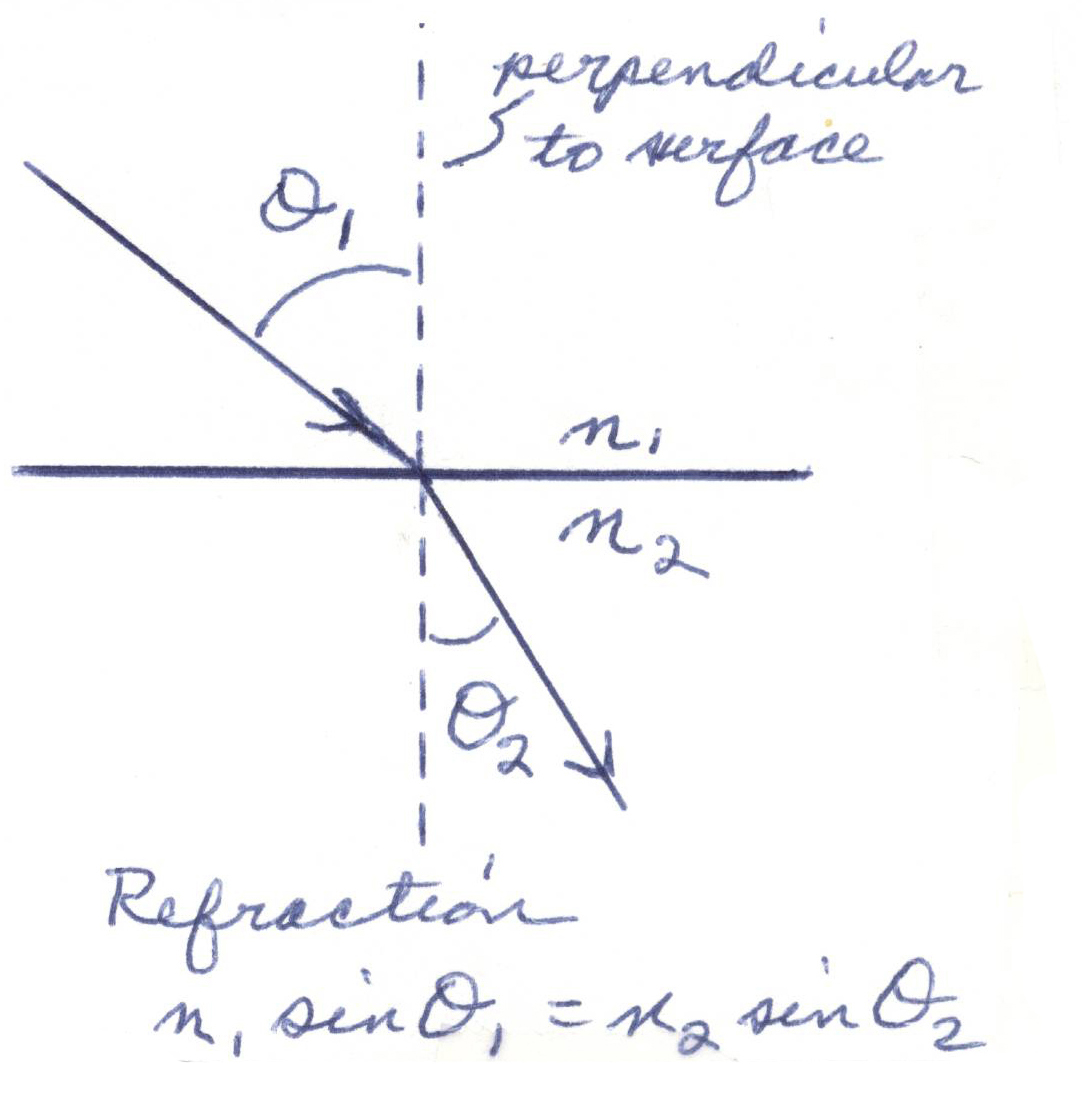 perpendicular
to surface
θ₁
n₁
n₂
θ₂
Refraction
n₁ sin θ₁ = n₂ sin θ₂